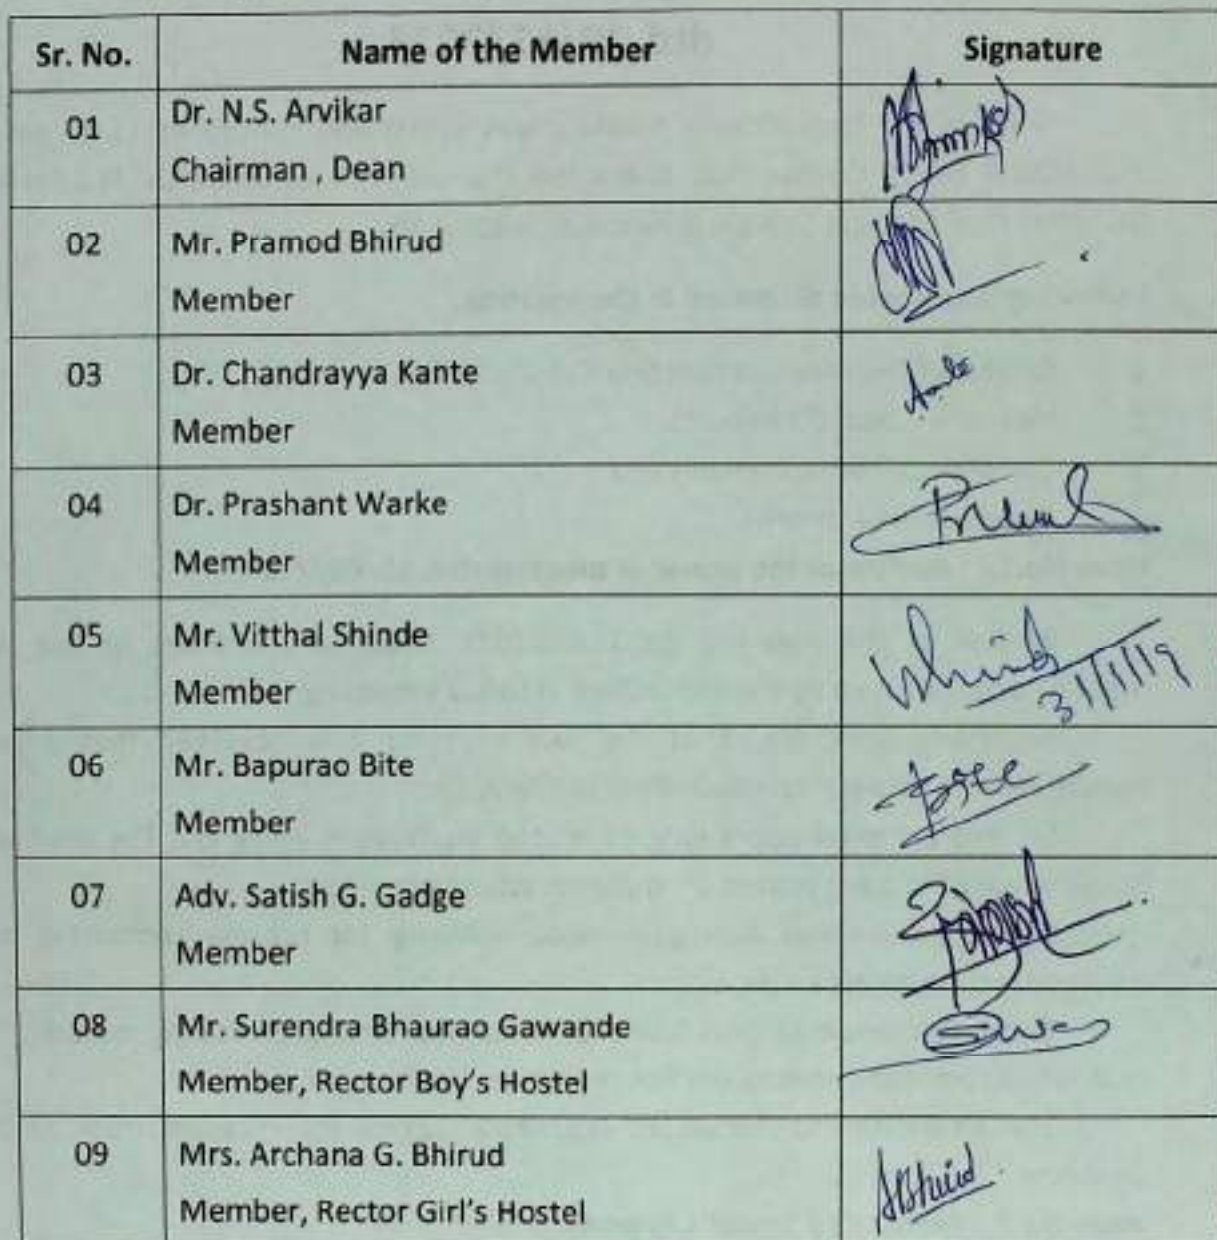 Sr. No. Name of the Member Signature
01 Dr. N.S. Arvikar
Chairman , Dean
02 Mr. Pramod Bhirud
Member
03 Dr. Chandrayya Kante
Member
04 Dr. Prashant Warke
Member
05 Mr. Vitthal Shinde
Member 31/1/19
06 Mr. Bapurao Bite
Member
07 Adv. Satish G. Gadge
Member
08 Mr. Surendra Bhaurao Gawande
Member, Rector Boy's Hostel
09 Mrs. Archana G. Bhirud ABhirud
Member, Rector Girl's Hostel